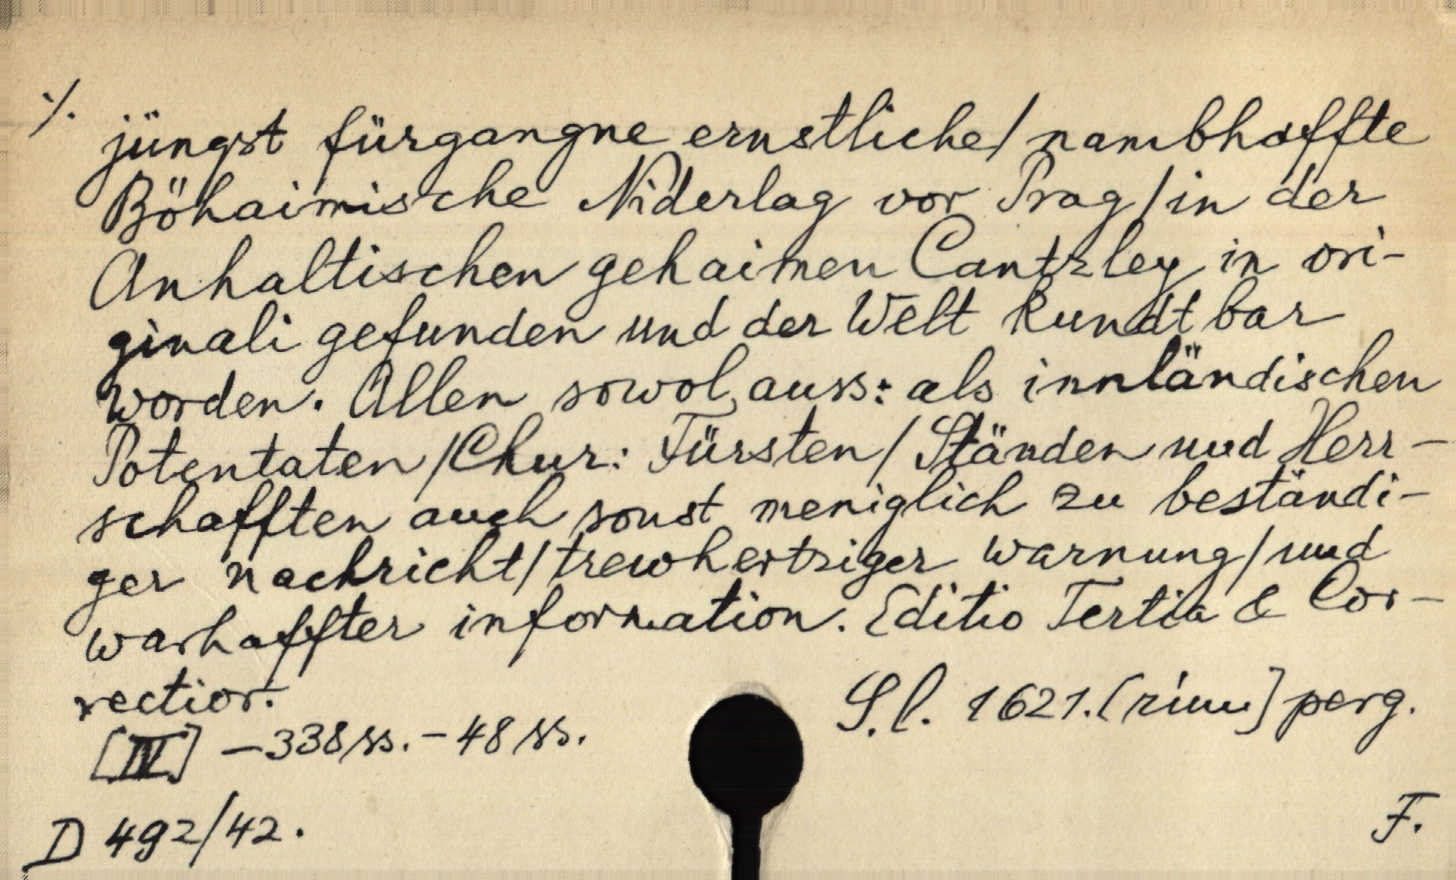 ./.
jüngst fürgangne ernstliche/ nambhaffte
Böhaimische Niderlag vor Prag/in der
Anhaltischen gehaimen Cantzley in ori-
ginali gefunden und der Welt kundtbar
worden. Allen sowol auss: als innländischen
Potentaten/Chur: Fürsten/Ständen und Herr-
schafften auch sonst meniglich zu beständi-
ger nachricht/trewhertziger warnung/und
warhaffter information. Editio Tertia & Cor-
rectior.
S.l. 1621. [rimu] perg.
[IV] -338 ss. - 48 ss.
D 492/42.
F.